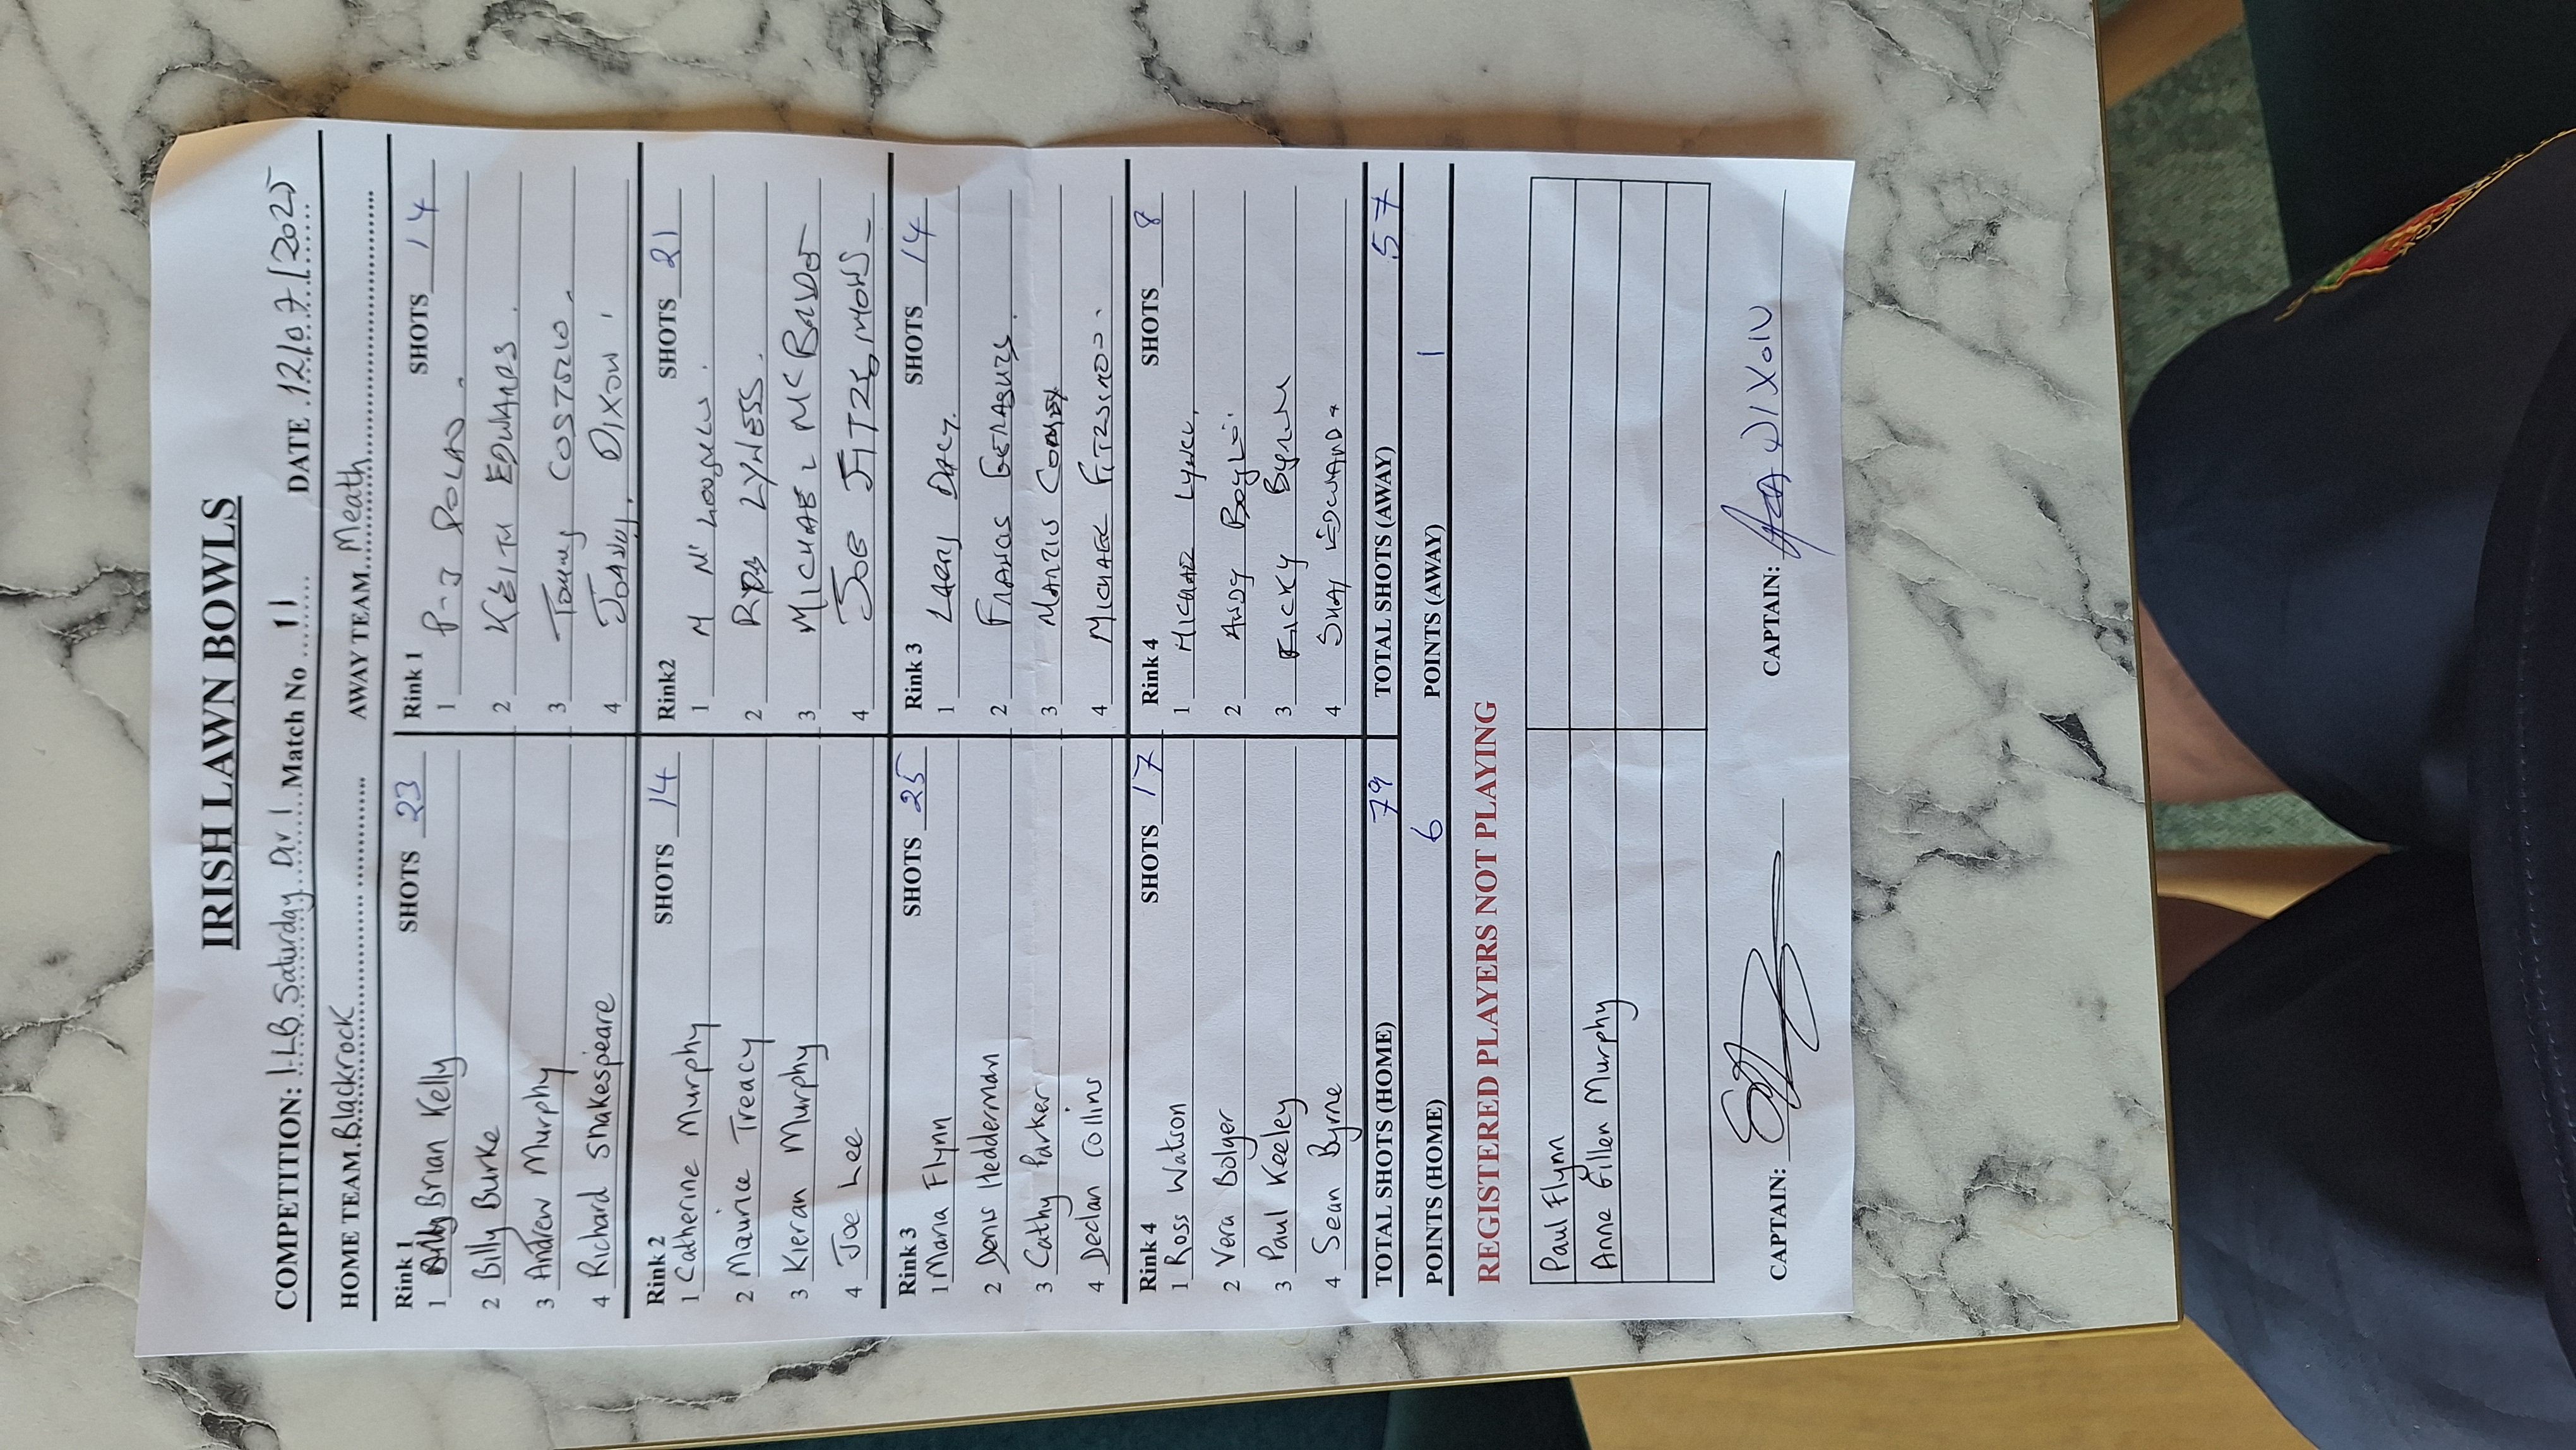 IRISH LAWN BOWLS
COMPETITION: I.L.B Saturday Div 1 Match No 11 DATE 12/07/2025
HOME TEAM Blackrock AWAY TEAM Meath
Rink 1 SHOTS 23 Rink 1 SHOTS 14
1 Brian Kelly 1 P-J
2 Billy Burke 2 KEITH EDWARDS
3 Andrew Murphy 3 Tommy COSTELLO
4 Richard Shakespeare 4 DIXON
Rink 2 SHOTS 14 Rink2 SHOTS 21
1 Catherine Murphy 1 M
2 Maurice Treacy 2 LYNESS
3 Kieran Murphy 3 MICHAEL MC
4 Joe Lee 4 JOE FITZSIMONS
Rink 3 SHOTS 25 Rink 3 SHOTS 14
1 Maria Flynn 1 LARRY DARCY
2 Denis Hedderman 2 FRANCIS GERAGHTY
3 Cathy Parker 3
4 Declan Collins 4 MICHAEL
Rink 4 SHOTS 17 Rink 4 SHOTS 8
1 Ross Watson 1 MICHAEL LYNCH
2 Vera Bolger 2 ANDY
3 Paul Keeley 3 BYRNE
4 Sean Byrne 4 SHAY
TOTAL SHOTS (HOME) 79 TOTAL SHOTS (AWAY) 57
POINTS (HOME) 6 POINTS (AWAY) 1
REGISTERED PLAYERS NOT PLAYING
Paul Flynn
Anne Gillen Murphy
CAPTAIN: CAPTAIN: DIXON